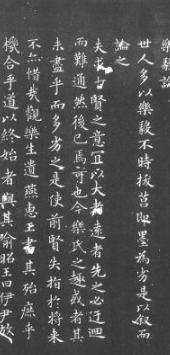 樂毅論
世人多以樂毅不時拔莒即墨為劣是以敘而
論之
夫求古賢之意宜以大者遠者先之必迂迴
而難通然後已焉可也今樂氏之趣或者其
未盡乎而多劣之是使前賢失指於將來
不亦惜哉觀樂生遺燕惠王書其殆庶乎
機合乎道以終始者與其喻昭王曰伊尹放